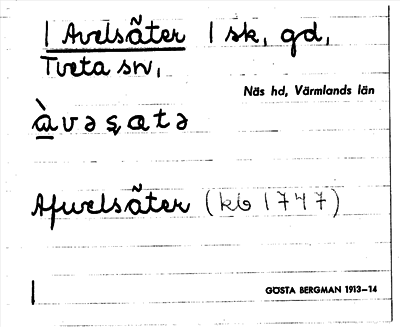 1 Avelsäter 1 sk, gd,
Tveta sn,
Näs hd, Värmlands län
àvəʂatə
Afwelsäter (kb 1747)
GÖSTA BERGMAN 1913–14